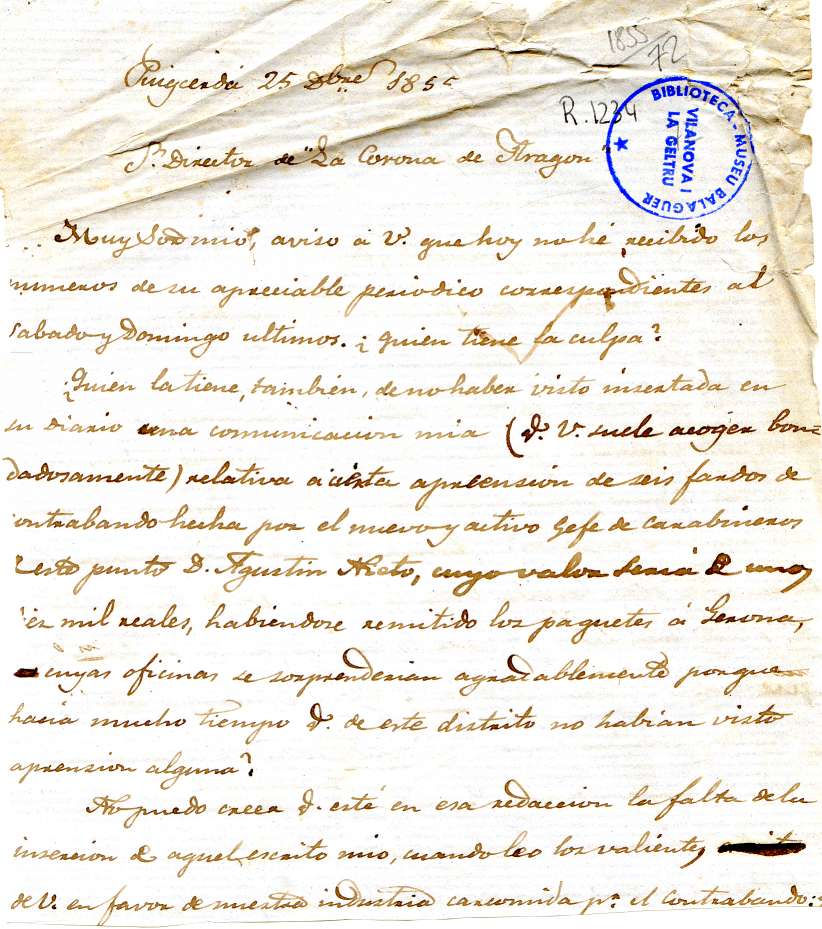 1855
72
R.1234
BIBLIOTECA-MUSEU BALAGUER
VILANOVA I
LA GELTRU
Puigcerdá 25 Dbre 1855
Sr. Director de "La Corona de Aragon"
Muy Sor mio, aviso á V. que hoy no hé recibido los
numeros de su apreciable periodico correspondientes al
sabado y Domingo ultimos. ¿Quien tiene la culpa?
¿Quien la tiene, también, de no haber visto insertada en
su diario una comunicacion mia (q. V. suele acoger bon=
dadosamente) relativa á cierta aprension de seis fardos de
contrabando hecha por el nuevo y activo Gefe de carabineros
de este punto D. Agustin Nieto, cuyo valor será de unos
diez mil reales, habiendose remitido los paquetes á Gerona,
cuyas oficinas se sorprenderian agradablemente porque
hacia mucho tiempo q. de este distrito no habian visto
aprension alguna?
No puedo creer q. esté en esa redaccion la falta de la
insercion de aquel escrito mio, cuando leo los valientes
de V. en favor de nuestra industria carcomida pr. el contrabando: